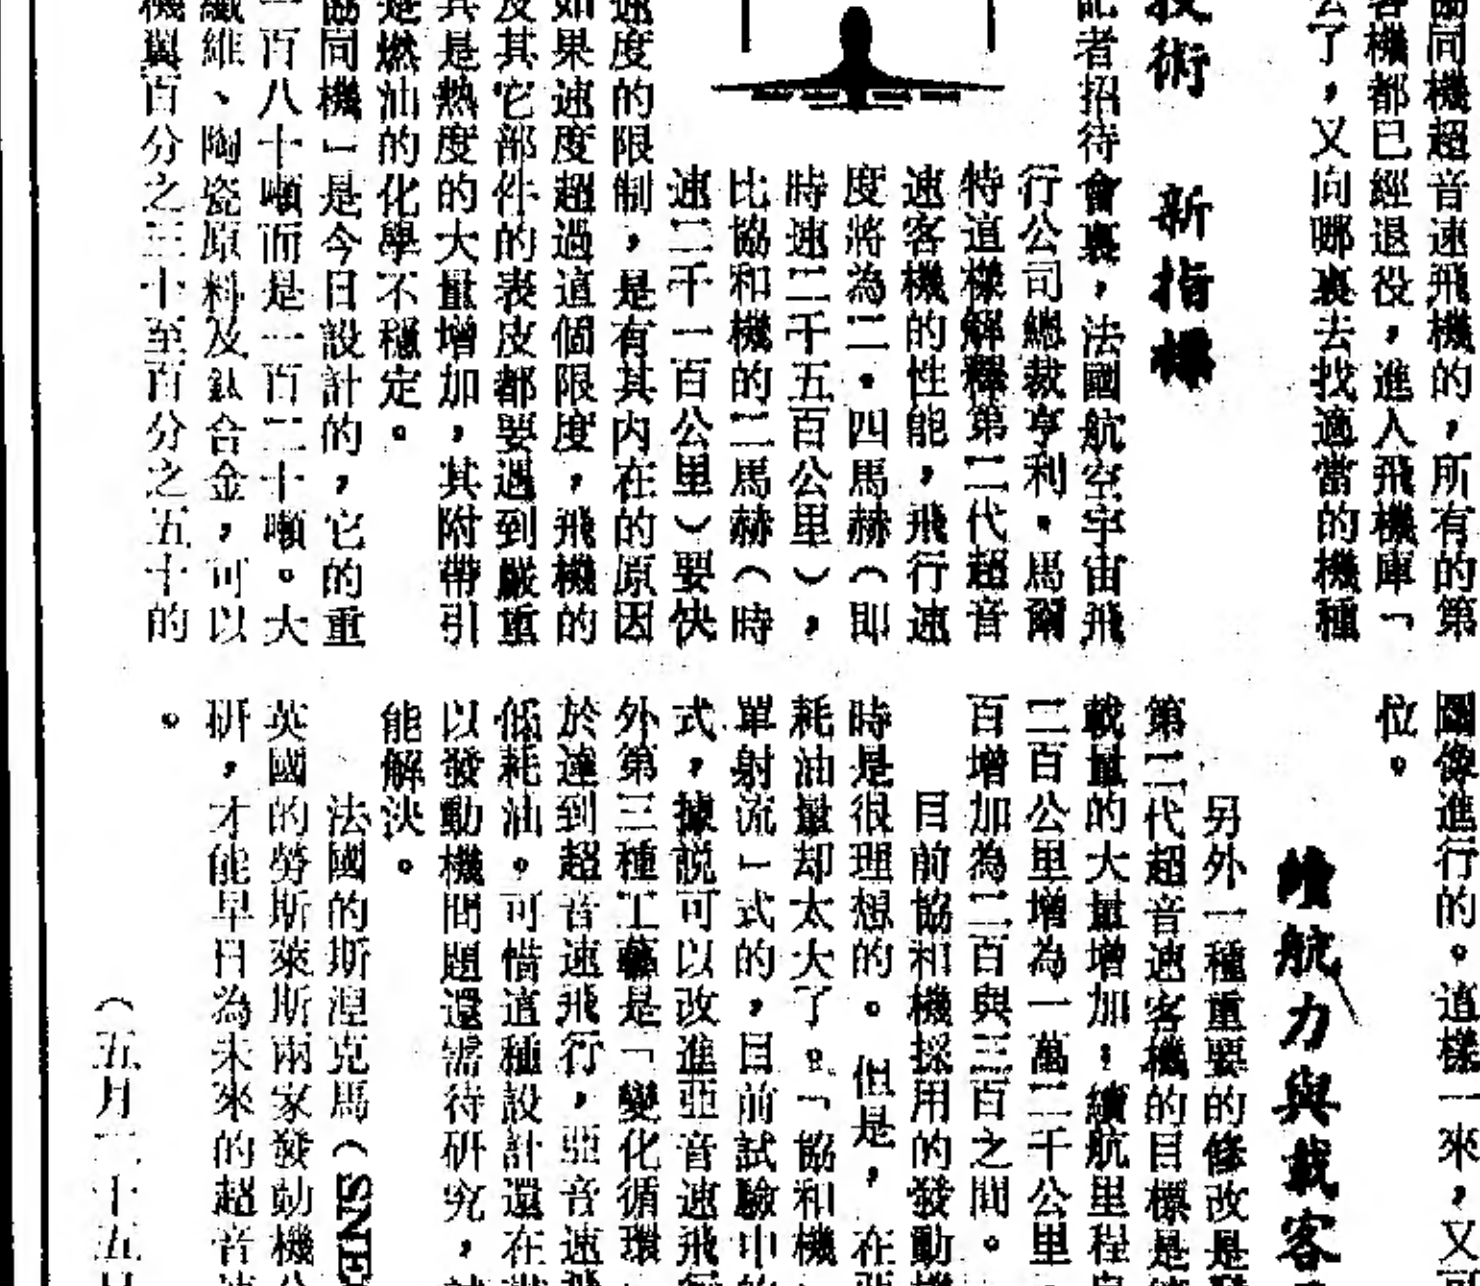 同機超音速飛機的，所有的第
客機都已經退役，進入飛機庫「
了，又向哪裏去找適當的機種
技術　新指標
記者招待會裏，法國航空宇宙飛
行公司總裁亨利・馬爾
特這樣解釋第二代超音
速客機的性能，飛行速
度將為二・四馬赫（即
時速二千五百公里），
比協和機的二馬赫（時
速二千一百公里）要快
速度的限制，是有其内在的原因
如果速度超過這個限度，飛機的
及其它部件的表皮都要遇到嚴重
其是熱度的大量增加，其附帶引
是燃油的化學不穩定。
協同機」是今日設計的，它的重
一百八十噸而是一百二十噸。大
纖維、陶瓷原料及鈦合金，可以
機翼百分之三十至百分之五十的
圖像進行的。這樣一來，又
位。
續航力與載客
另外一種重要的修改是
第二代超音速客機的目標是
載量的大量增加：續航里程
二百公里增為一萬二千公里
百增加為二百與三百之間。
目前協和機採用的發動
時是很理想的。但是，在
耗油量却太大了。「協和機
單射流」式的，目前試驗中
式，據説可以改進亞音速飛
外第三種工藝是「變化循環
於達到超音速飛行，亞音速
低耗油。可惜這種設計還在
以發動機問題還需待研究，
能解決。
法國的斯涅克馬（SNE
英國的勞斯萊斯兩家發動機
研，才能早日為未來的超音
。
（五月二十五日